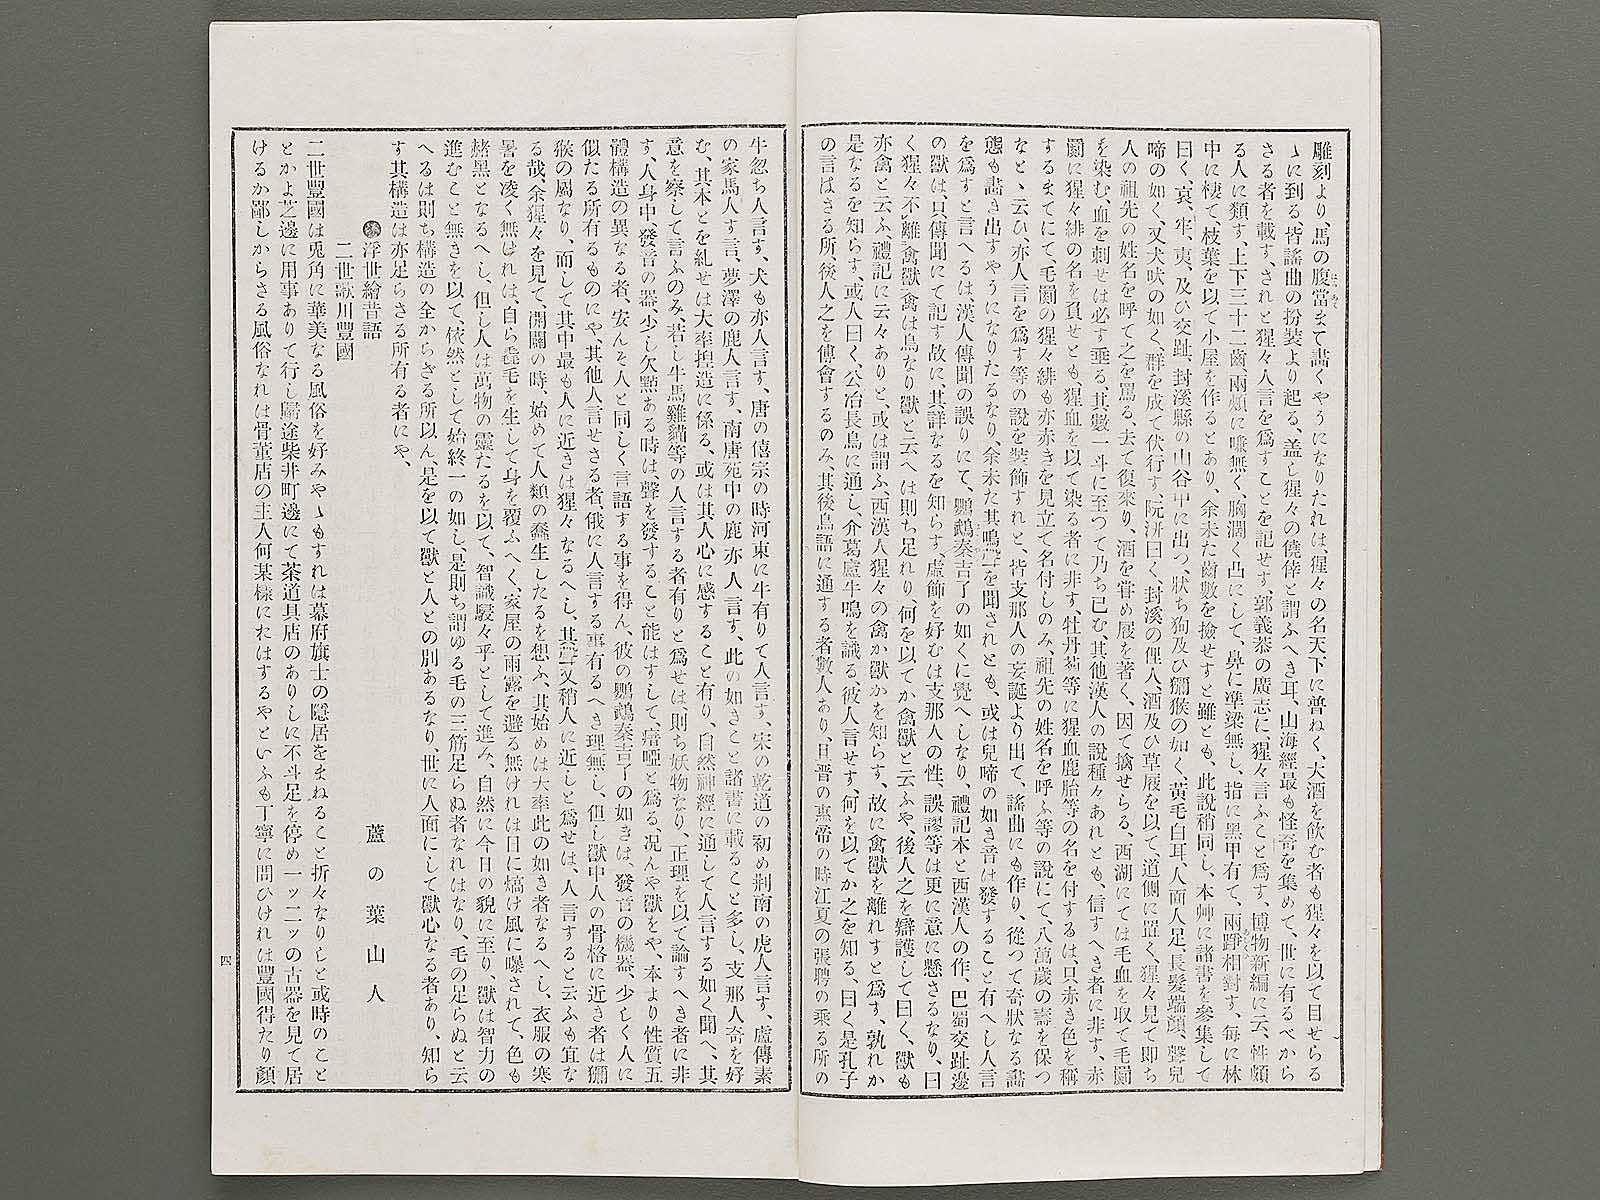 雕刻より、馬の腹當まて畵くやうになりたれは、猩々の名天下に普ねく、大酒を飮む者も猩々を以て目せらる
ゝに到る、皆謠曲の扮裝より起る、盖し猩々の僥倖と謂ふへき耳、山海經最も怪奇を集めて、世に有るべから
さる者を載す、されと猩々人言を爲すことを記せす、郭義恭の廣志に、猩々言ふこと爲す、博物新編に云、性頗
る人に類す、上下三十二齒、兩頰に嗛無く、胸濶く凸にして、鼻に準梁無し、指に黑甲有て、兩踭相對す、每に林
中に棲て、枝葉を以て小屋を作るとあり、余未た齒數を撿せすと雖とも、此說稍同し、本艸に諸書を參集して
曰く、哀、牢、夷、及ひ交趾、封溪縣の山谷中に出つ、狀ち狗及ひ獼猴の如く、黃毛白耳、人面人足、長髮端顏、聲兒
啼の如く、又犬吠の如く、群を成て伏行す、阮汧曰く、封溪の俚人、酒及ひ草屐を以て、道側に置く、猩々見て卽ち
人の祖先の姓名を呼て之を罵る、去て復來り、酒を甞め屐を著く、因て擒せらる、西湖にては毛血を取て毛罽
を染む、血を刺せは必す乖る、其數一斗に至つて乃ち已む、其他漢人の說種々あれとも、信すへき者に非す、赤
罽に猩々緋の名を負せとも、猩血を以て染る者に非す、牡丹茄等に猩血鹿胎等の名を付するは、只赤き色を稱
するまてにて、毛罽の猩々緋も亦赤きを見立て名付しのみ、祖先の姓名を呼ふ等の說にて、八萬歲の壽を保つ
なとゝ云ひ、亦人言を爲す等の說を裝飾すれと、皆支那人の妄誕より出て、謠曲にも作り、從つて奇狀なる畵
態も畵き出すやうになりたるなり、余未た其鳴聲を聞されとも、或は兒啼の如き音は發すること有へし人言
を爲すと言へるは、漢人傳聞の誤りにて、鸚鵡秦吉了の如くに覺へしなり、禮記本と西漢人の作、巴蜀交趾邊
の獸は、只傳聞にて記す故に、其詳なるを知らす、虛飾を好むは支那人の性、誤謬等は更に意に懸さるなり、曰
く猩々不離禽獸禽は鳥なり獸と云へは則ち足れり、何を以てか禽獸と云ふや、後人之を辯護して曰く、獸も
亦禽と云ふ、禮記に云々ありと、或は謂ふ、西漢人猩々の禽か獸かを知らす、故に禽獸を離れすと爲す、孰れか
是なるを知らす、或人曰く、公冶長鳥に通し、介葛盧牛鳴を識る、彼人言せす、何を以てか之を知る、曰く是孔子
の言はさる所、後人之を傳會するのみ、其後鳥語に通する者數人あり、且晋の惠帝の時江夏の張騁の乘る所の
牛忽ち人言す、犬も亦人言す、唐の僖宗の時河東に牛有りて人言す、宋の乾道の初め荆南の虎人言す、盧傳素
の家馬人す言、夢澤の鹿人言す、南唐苑中の鹿亦人言す、此の如きこと諸書に載ること多し、支那人奇を好
む、其本とを糺せは大率揑造に係る、或は其人心に感すること有り、自然神經に通して人言する如く聞へ、其
意を察して言ふのみ、若し牛馬雞猫等の人言する者有りと爲せは、則ち妖物なり、正理を以て論すへき者に非
す、人身中、發音の器、少し欠點ある時は聲を發すること能はすして、瘖啞と爲る、况んや獸をや、本より性質五
體構造の異なる者、安んそ人と同しく言語する事を得ん、彼の鸚鵡秦吉了の如きは、發音の機器、少しく人に
似たる所有るものにや、其他人言せさる者、俄に人言する事有るへき理無し、但し獸中人の骨格に近き者は獼
猴の屬なり、而して其中最も人に近きは猩々なるへし、其聲又稍人に近しと爲せは、人言すると云ふも宜な
る哉、余猩々を見て、開闢の時、始めて人類の蠢生したるを想ふ、其始めは大率此の如き者なるへし、衣服の寒
暑を凌く無けれは、自ら毳毛を生して身を覆ふへく、家屋の雨露を避る無けれは日に熇け風に曝されて、色も
赭黑となるへし、但し人は萬物の靈たるを以て、智識駸々乎として進み、自然に今日の貌に至り、獸は智力の
進むこと無きを以て、依然として始終一の如し、是則ち謂ゆる毛の三筋足らぬ者なれはなり、毛の足らぬと云
へるは則ち構造の全からざる所以ん、是を以て獸と人との別あるなり、世に人面にして獸心なる者あり、知ら
す其構造は亦足らさる所有る者にや、
浮世繪昔語　蘆の葉山人
二世歌川豐國
二世豐國は兎角に華美なる風俗を好みやゝもすれは幕府旗士の隱居をまねること折々なりしと或時のこと
とかよ芝邊に用事ありて行し歸途柴井町邊にて茶道具店のありしに不斗足を停め一ッ二ッの古器を見て居
けるか鄙しからさる風俗なれは骨董店の主人何某樣にわはするやといふも丁寧に問ひけれは豐國得たり顏
四